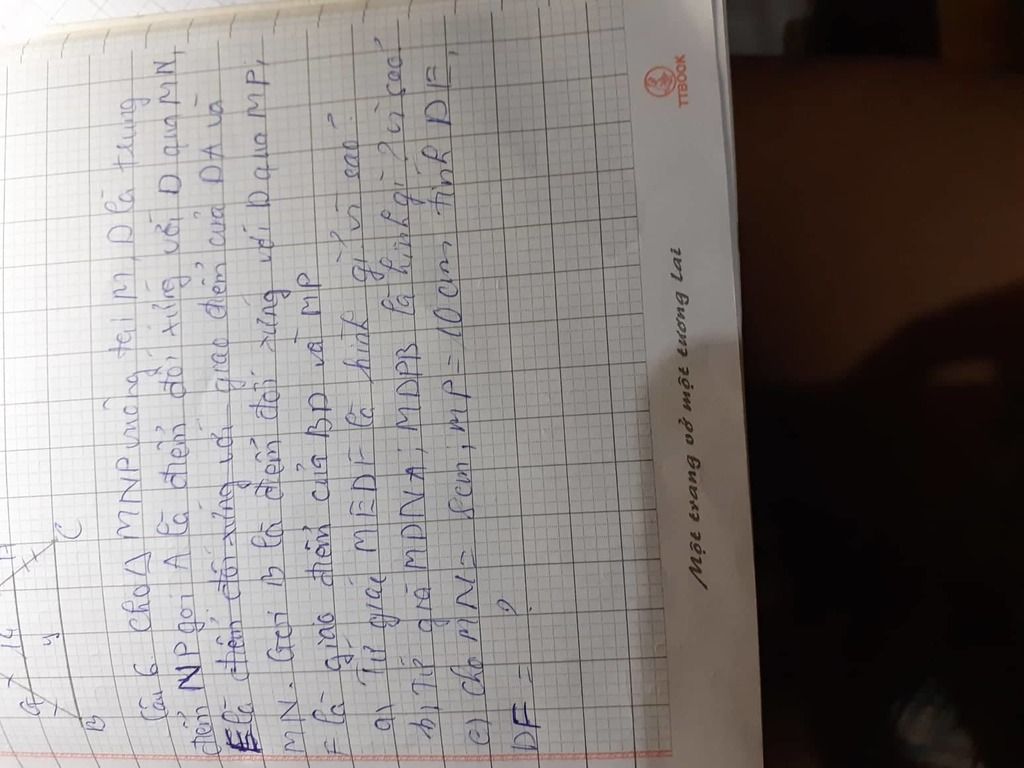 B
C
Câu 6. Cho Δ MNP vuông tại M, D là trung
điểm NP gọi A là điểm đối xứng với D qua MN,
E là điểm đối xứng với giao điểm của DA và
MN. Gọi B là điểm đối xứng với D qua MP,
F là giao điểm của BD và MP
a) Tứ giác MEDF là hình gì? vì sao?
b) Tứ giá MDNA; MDPB là hình gì? vì sao?
c) Cho MN = 8cm, MP = 10cm tính DE,
DF = ?
TTBOOK
Một trang vở một tương lai